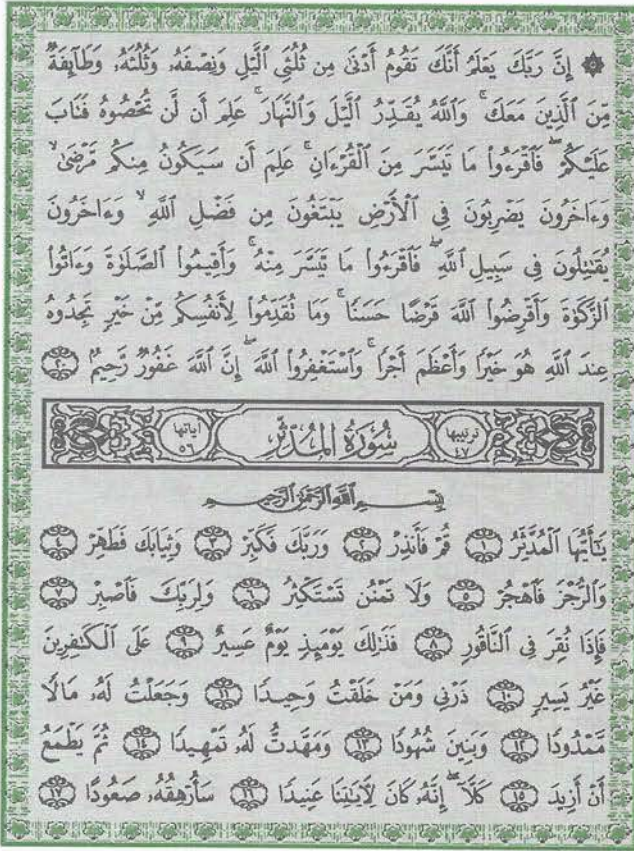 ۞ إِنَّ رَبَّكَ يَعْلَمُ أَنَّكَ تَقُومُ أَدْنَىٰ مِن ثُلُثَيِ ٱلَّيْلِ وَنِصْفَهُۥ وَثُلُثَهُۥ وَطَآئِفَةٌ
مِّنَ ٱلَّذِينَ مَعَكَ ۚ وَٱللَّهُ يُقَدِّرُ ٱلَّيْلَ وَٱلنَّهَارَ ۚ عَلِمَ أَن لَّن تُحْصُوهُ فَتَابَ
عَلَيْكُمْ ۖ فَٱقْرَءُوا۟ مَا تَيَسَّرَ مِنَ ٱلْقُرْءَانِ ۚ عَلِمَ أَن سَيَكُونُ مِنكُم مَّرْضَىٰ ۙ
وَءَاخَرُونَ يَضْرِبُونَ فِى ٱلْأَرْضِ يَبْتَغُونَ مِن فَضْلِ ٱللَّهِ ۙ وَءَاخَرُونَ
يُقَٰتِلُونَ فِى سَبِيلِ ٱللَّهِ ۖ فَٱقْرَءُوا۟ مَا تَيَسَّرَ مِنْهُ ۚ وَأَقِيمُوا۟ ٱلصَّلَوٰةَ وَءَاتُوا۟
ٱلزَّكَوٰةَ وَأَقْرِضُوا۟ ٱللَّهَ قَرْضًا حَسَنًا ۚ وَمَا تُقَدِّمُوا۟ لِأَنفُسِكُم مِّنْ خَيْرٍ تَجِدُوهُ
عِندَ ٱللَّهِ هُوَ خَيْرًا وَأَعْظَمَ أَجْرًا ۚ وَٱسْتَغْفِرُوا۟ ٱللَّهَ ۖ إِنَّ ٱللَّهَ غَفُورٌ رَّحِيمٌۢ ٢٠
ترتيبها ٤٧ سُورَةُ الْمُدَّثِّرِ آياتها ٥٦
بِسْمِ ٱللَّهِ ٱلرَّحْمَٰنِ ٱلرَّحِيمِ
يَٰٓأَيُّهَا ٱلْمُدَّثِّرُ ١ قُمْ فَأَنذِرْ ٢ وَرَبَّكَ فَكَبِّرْ ٣ وَثِيَابَكَ فَطَهِّرْ ٤
وَٱلرُّجْزَ فَٱهْجُرْ ٥ وَلَا تَمْنُن تَسْتَكْثِرُ ٦ وَلِرَبِّكَ فَٱصْبِرْ ٧
فَإِذَا نُقِرَ فِى ٱلنَّاقُورِ ٨ فَذَٰلِكَ يَوْمَئِذٍ يَوْمٌ عَسِيرٌ ٩ عَلَى ٱلْكَٰفِرِينَ
غَيْرُ يَسِيرٍ ١٠ ذَرْنِى وَمَنْ خَلَقْتُ وَحِيدًا ١١ وَجَعَلْتُ لَهُۥ مَالًا
مَّمْدُودًا ١٢ وَبَنِينَ شُهُودًا ١٣ وَمَهَّدتُّ لَهُۥ تَمْهِيدًا ١٤ ثُمَّ يَطْمَعُ
أَنْ أَزِيدَ ١٥ كَلَّآ ۖ إِنَّهُۥ كَانَ لِءَايَٰتِنَا عَنِيدًا ١٦ سَأُرْهِقُهُۥ صَعُودًا ١٧